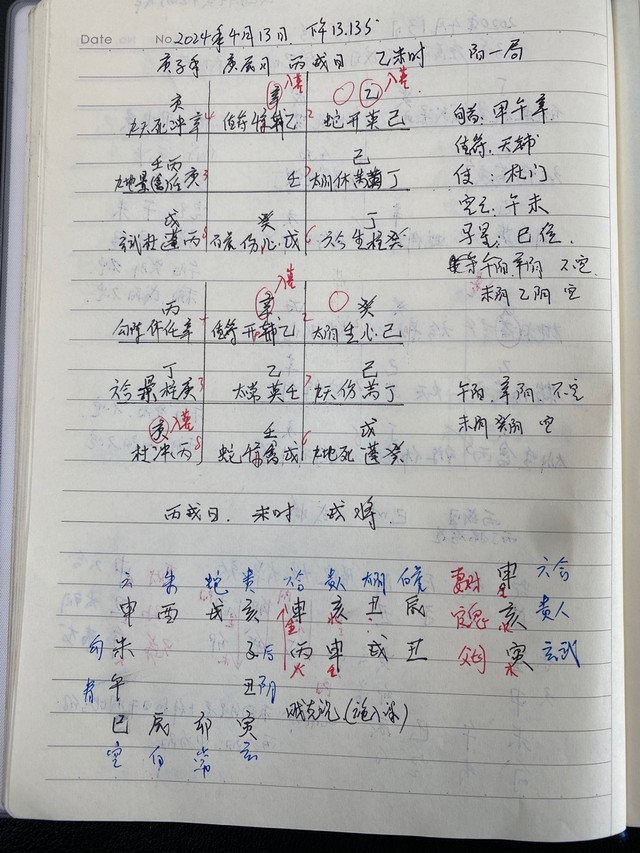 Date No. 2024年4月13日. 下午13.135
庚子年 庚辰月 丙戌日 乙未时 阳一局
入墓 入墓
庚 辛 乙
九天死冲辛 4 值符惊辅乙 2 蛇开英己 旬首: 甲午辛
值符: 天辅
壬丙 己
九地景禽任庚 3 壬 7 太阴休芮丁 使: 杜门
空亡: 午未
戊 癸 丁
玄武杜蓬丙 8 白虎伤心戊 6 六合生柱癸 马星: 巳位.
午阳 辛阴 不空
未阴 乙阴 空
入墓
丙 辛 癸
勾陈休任辛 值符开辅乙 2 太阴生心己
丁 乙 己
六合景柱庚 3 太常英壬 7 九天伤芮丁 午阳. 辛阴. 不空
入墓 未阴 癸阴 空
庚 壬 戊
杜冲丙 8 蛇惊禽戊 6 九地死蓬癸
丙戌日. 未时 戌将.
玄 朱 蛇 贵 六合 贵人 太阴 白虎 妻财 申 六合
申 酉 戌 亥 申 亥 丑 辰 官鬼 亥 贵人
勾 朱 子 后 丙 申 戌 丑 父母 寅 玄武
青 午 丑 阴
巳 辰 卯 寅
空 白 常 玄